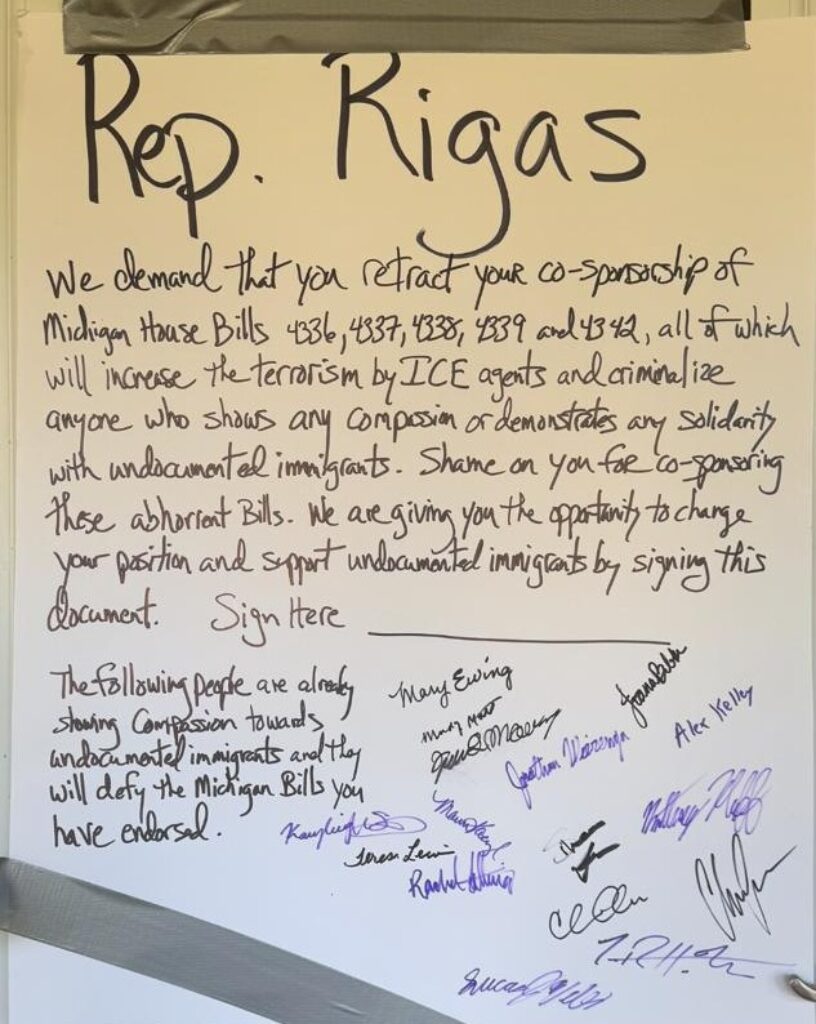 Rep. Rigas
We demand that you retract your co-sponsorship of
Michigan House Bills 4336, 4337, 4338, 4339 and 4342, all of which
will increase the terrorism by ICE agents and criminalize
anyone who shows any compassion or demonstrates any solidarity
with undocumented immigrants. Shame on you for co-sponsoring
these abhorrent Bills. We are giving you the opportunity to change
your position and support undocumented immigrants by signing this
document. Sign Here
The following people are already
showing Compassion towards
undocumented immigrants and they
will defy the Michigan Bills you
have endorsed.
Mary Ewing
Alex Kelly
Jonathan
Kayleigh
Teresa Lewis
Rachel